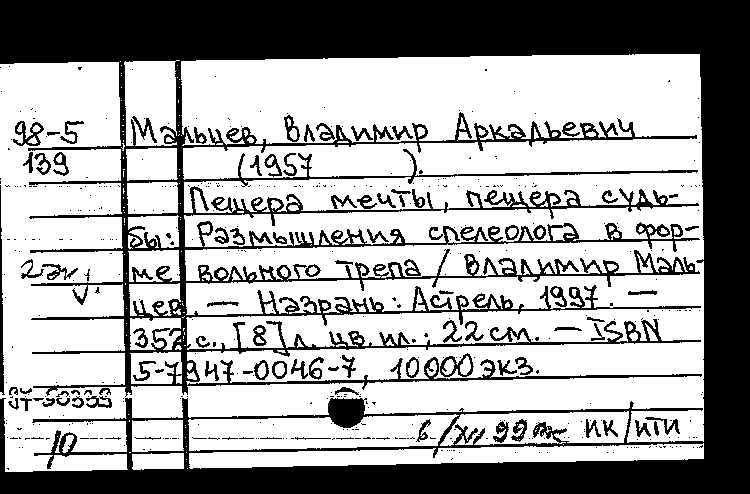 98-5 Мальцев, Владимир Аркадьевич
139 (1957 ).
Пещера мечты, пещера судь-
бы: Размышления спелеолога в фор-
2 эк ме вольного трепа / Владимир Маль-
цев. — Назрань: Астрель, 1997. —
352 с., [8] л. цв. ил.; 22 см. — ISBN
5-7947-0046-7, 10000 экз.
97-50339
10 6/XII 99 ИК/ИТИ